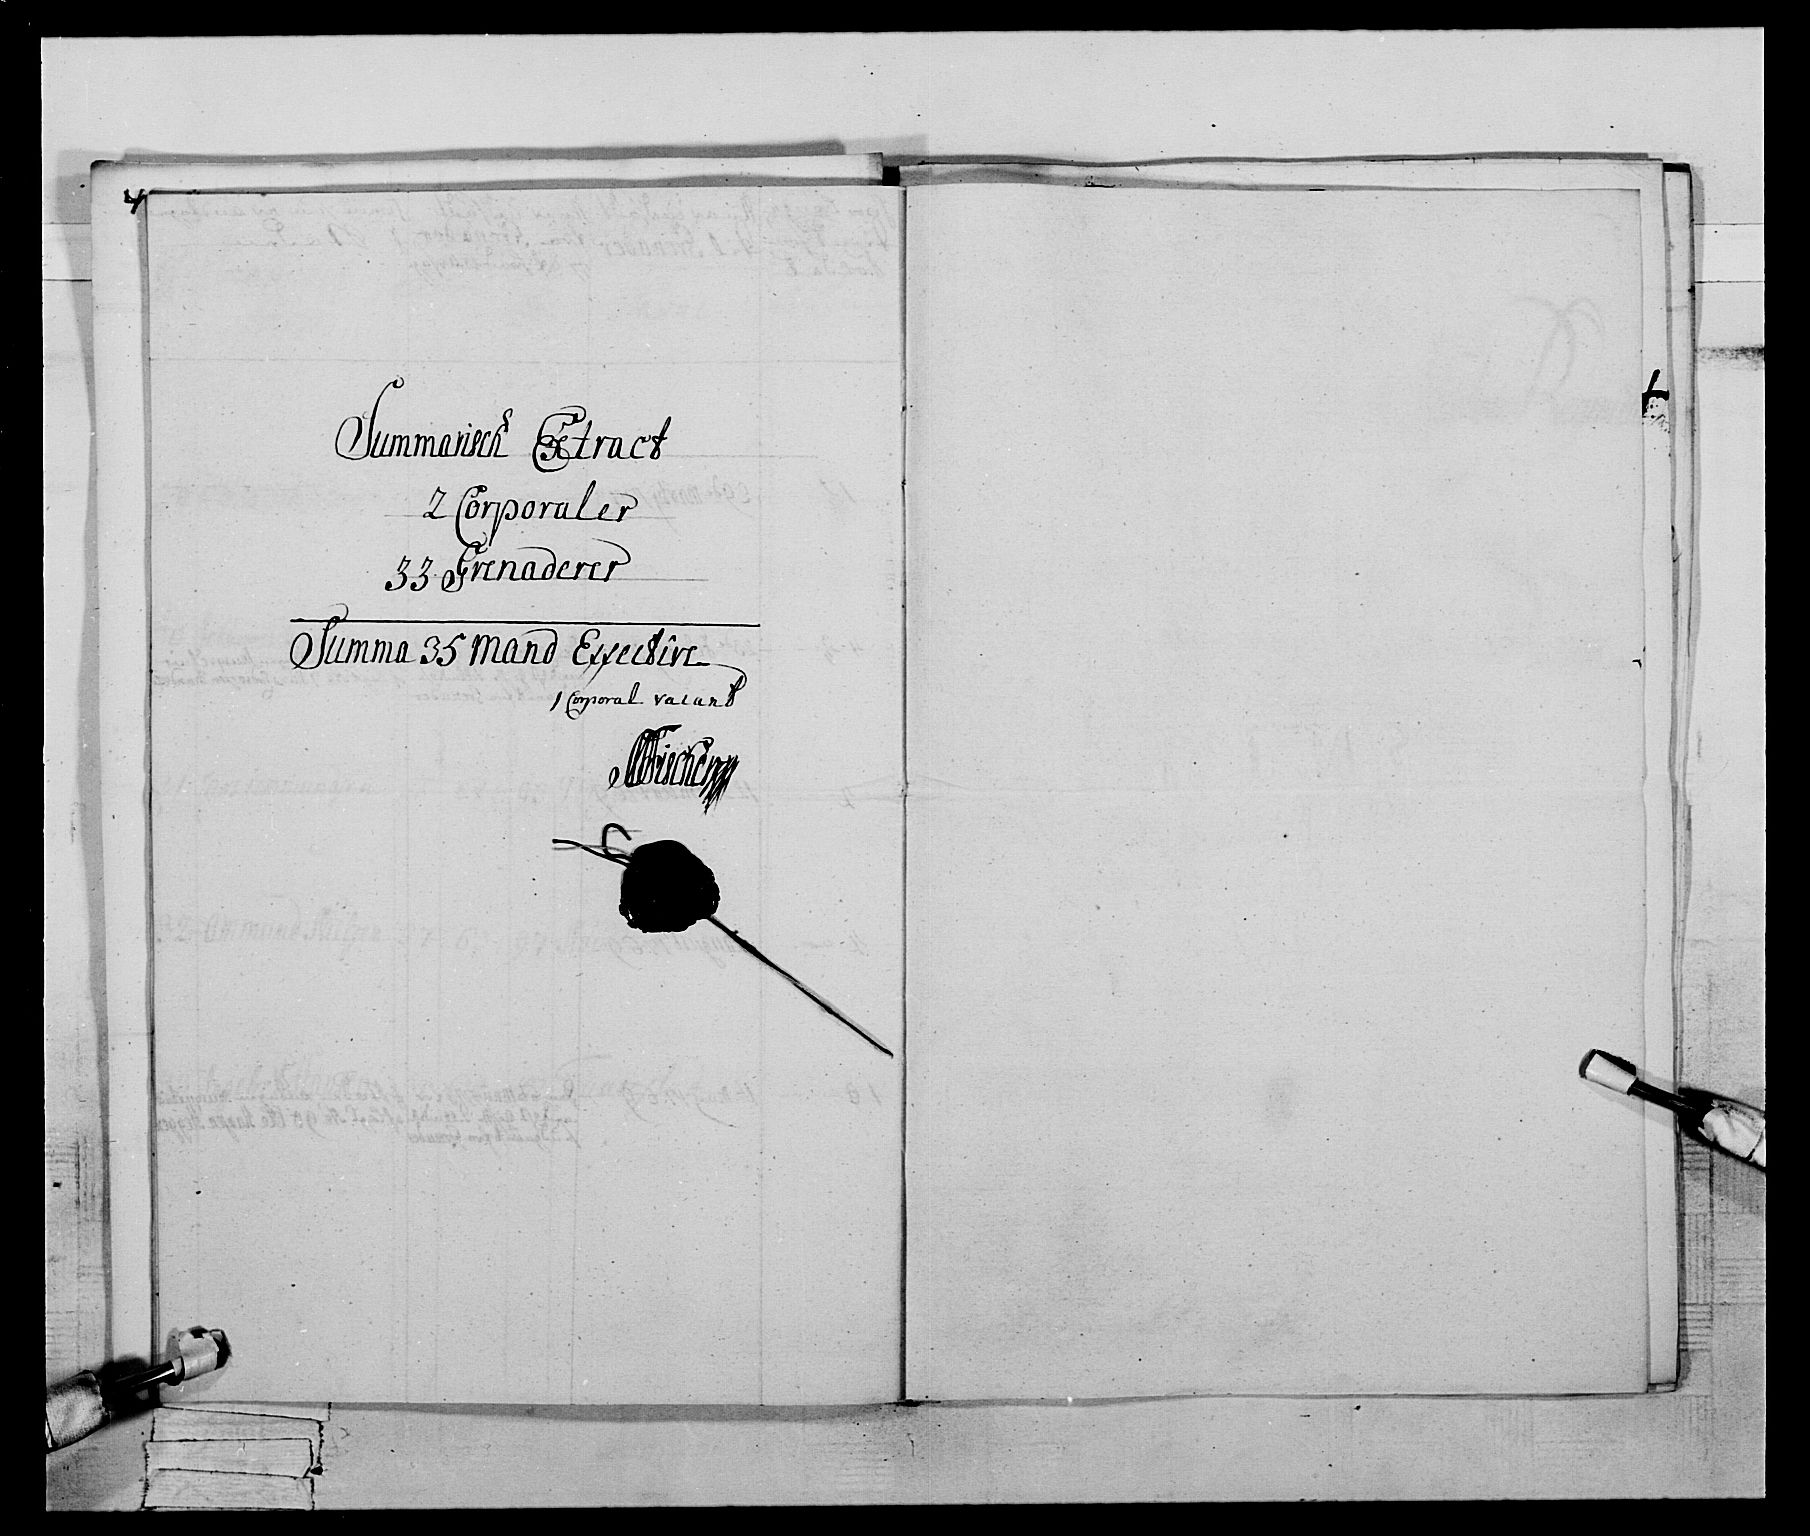 Summarisch Extract
2 Corporaler
33 Grenaderer
Summa 35 Mand Effective
1 Corporal vacant